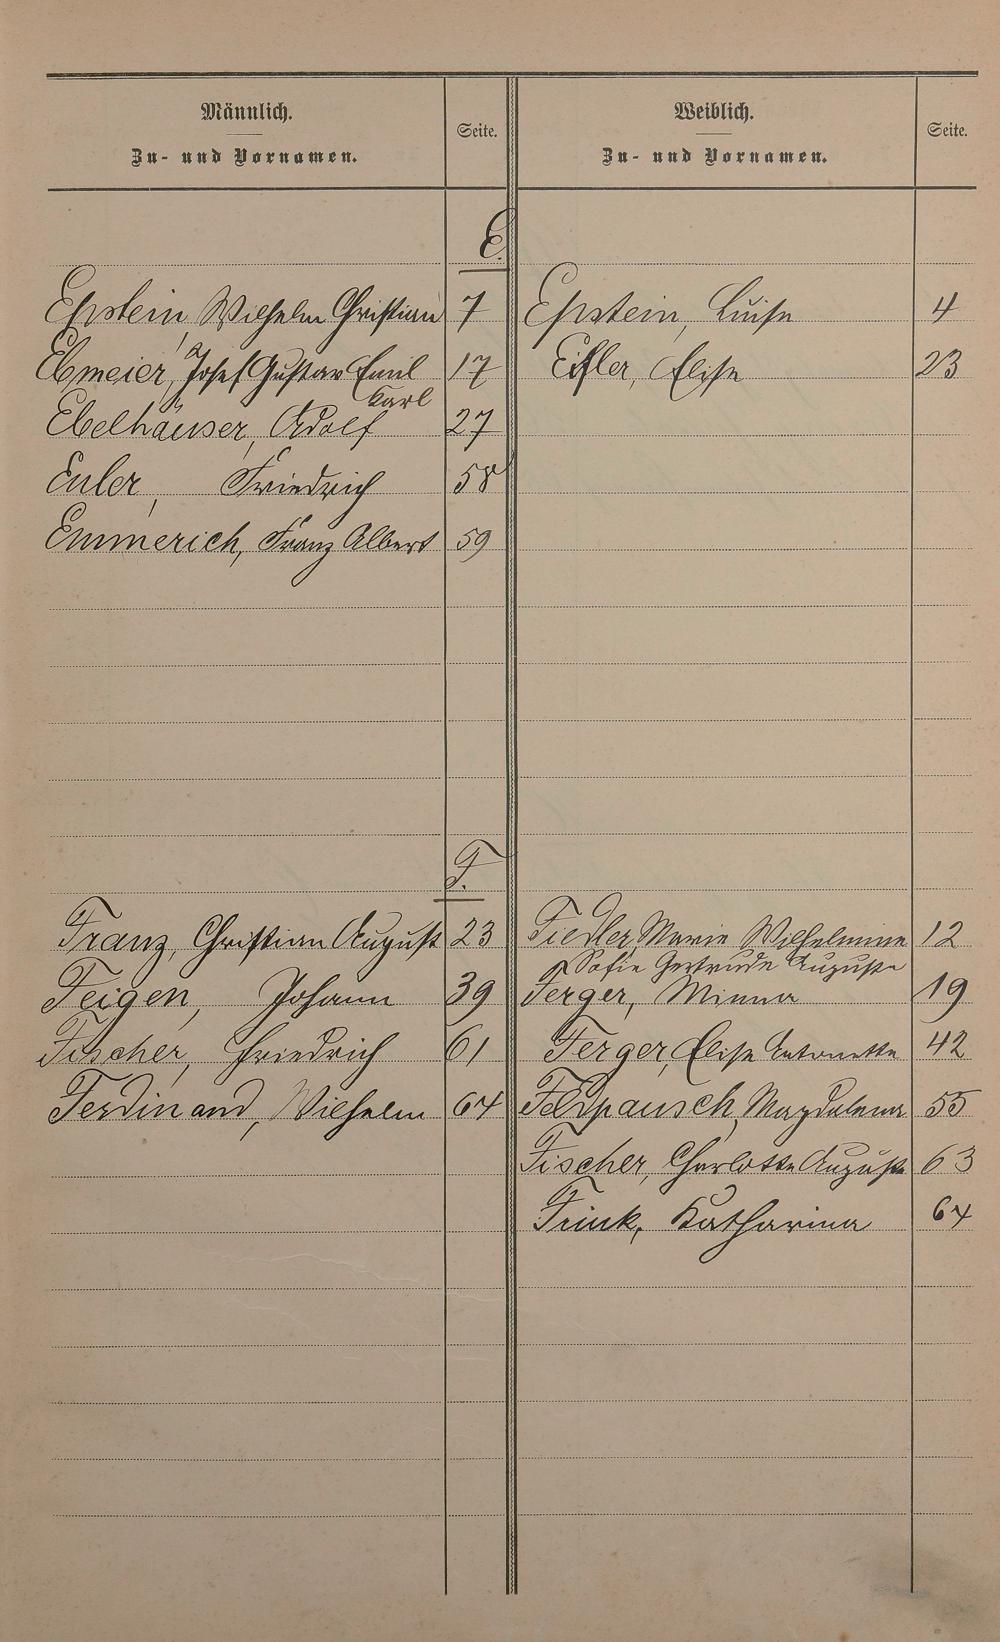 Männlich. Zu- und Vornamen. Seite. Weiblich. Zu- und Vornamen. Seite.
E.
Epstein, Wilhelm Christian 7 Epstein, Luise 4
Ebmeier, Josef Gustav Emil Karl 17 Eifler, Elise 23
Ebelhäuser, Adolf 27
Euler, Friedrich 58
Emmerich, Franz Albert 59
F.
Franz, Christian August 23 Fiedler, Marie Wilhelmine 12
Sofie Gertrude Auguste
Feigen, Johann 39 Ferger, Minna 19
Fischer, Friedrich 61 Ferger, Elise Antonette 42
Ferdinand, Wilhelm 64 Feldpausch, Magdalena 55
Fischer, Charlotte Auguste 63
Fink, Katharina 64